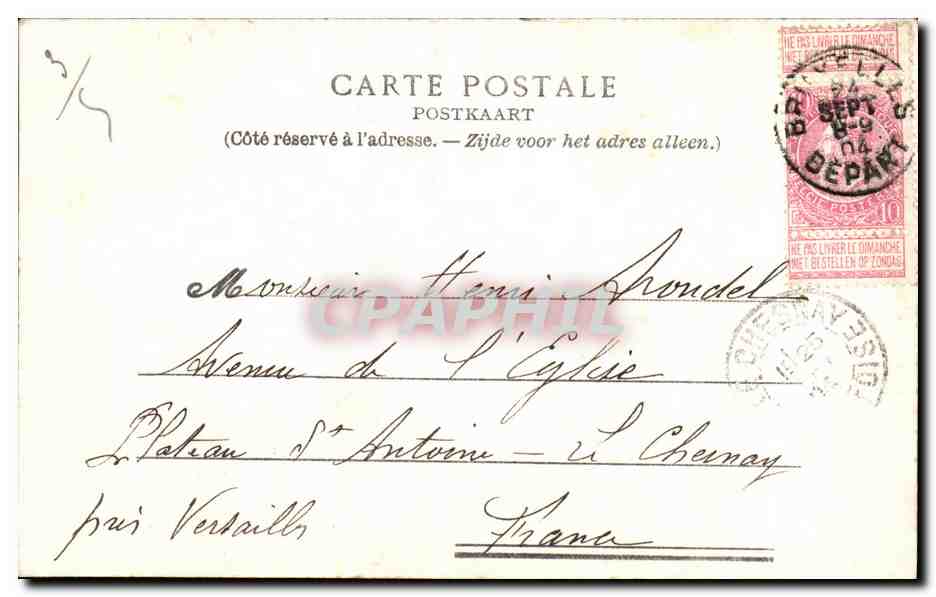 3/5
NE PAS LIVRER LE DIMANCHE
CARTE POSTALE
POSTKAART
(Côté réservé à l'adresse. — Zijde voor het adres alleen.)
BRUXELLES
24
SEPT
8-9
04
DEPART
10
NE PAS LIVRER LE DIMANCHE
NIET BESTELLEN OP ZONDAG
Monsieur Henri Arondel
CPAPHIL
LE CHESNAY SEINE
25
Avenue de l'Eglise
Plateau St Antoine — Le Chesnay
près Versailles France